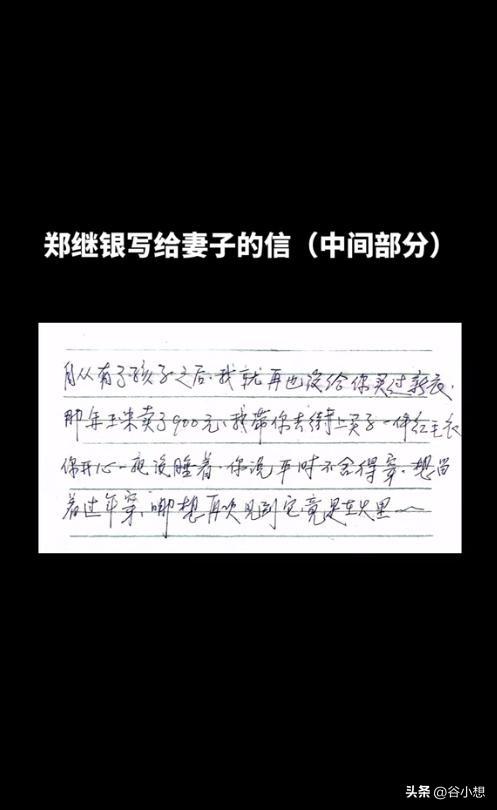 郑继银写给妻子的信（中间部分）
自从有了孩子之后,我就再也没给你买过新衣,
那年玉米卖了900元,我带你去街上买了一件红毛衣
你开心一夜没睡着,你说平时不舍得穿,想留
着过年穿,哪想再次见到它竟是在火里——
头条 @谷小想